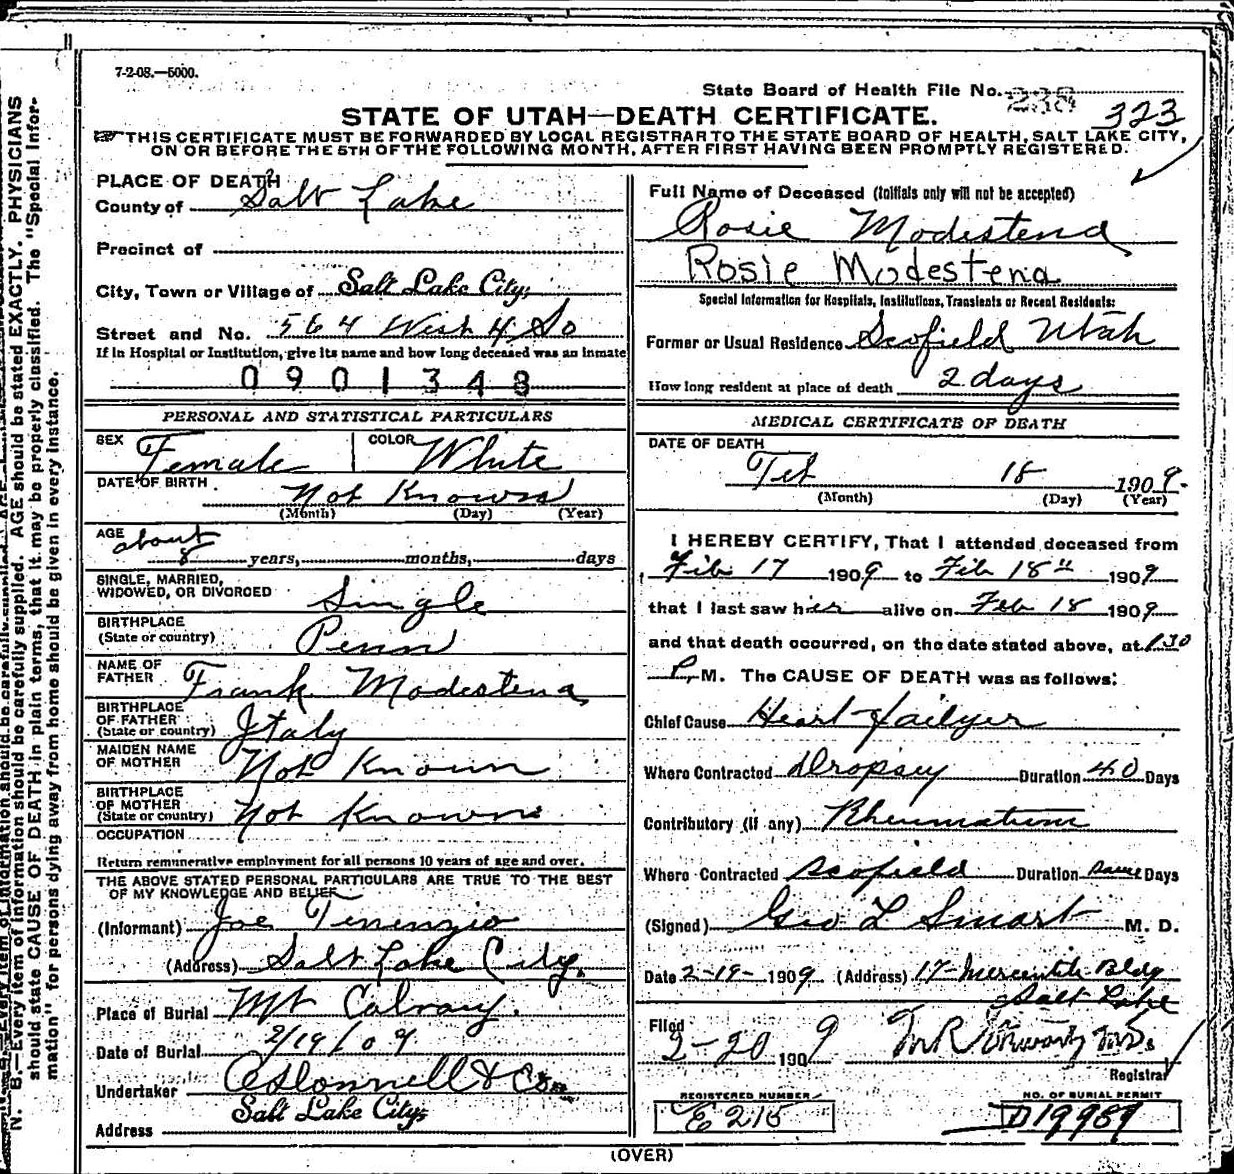 7-2-08.—5000.
State Board of Health File No. 238 323
STATE OF UTAH—DEATH CERTIFICATE.
THIS CERTIFICATE MUST BE FORWARDED BY LOCAL REGISTRAR TO THE STATE BOARD OF HEALTH, SALT LAKE CITY,
ON OR BEFORE THE 5TH OF THE FOLLOWING MONTH, AFTER FIRST HAVING BEEN PROMPTLY REGISTERED.
PLACE OF DEATH
County of Salt Lake
Precinct of
City, Town or Village of Salt Lake City,
Street and No. 564 West 4 So
If in Hospital or Institution, give its name and how long deceased was an inmate
0901348
PERSONAL AND STATISTICAL PARTICULARS
SEX Female COLOR White
DATE OF BIRTH Not Known
(Month) (Day) (Year)
AGE about
8 years, months, days
SINGLE, MARRIED,
WIDOWED, OR DIVORCED Single
BIRTHPLACE
(State or country) Penn
NAME OF
FATHER Frank Modestena
BIRTHPLACE
OF FATHER
(State or country) Italy
MAIDEN NAME
OF MOTHER Not Known
BIRTHPLACE
OF MOTHER
(State or country) Not Known
OCCUPATION
Return remunerative employment for all persons 10 years of age and over.
THE ABOVE STATED PERSONAL PARTICULARS ARE TRUE TO THE BEST
OF MY KNOWLEDGE AND BELIEF
(Informant) Joe Tenenzio
(Address) Salt Lake City.
Place of Burial Mt Calvary.
Date of Burial 2/19/09
Undertaker O'Donnell & Co
Salt Lake City
Address
Full Name of Deceased (Initials only will not be accepted)
Rosie Modestena
Rosie Modestena
Special Information for Hospitals, Institutions, Transients or Recent Residents:
Former or Usual Residence Scofield Utah
How long resident at place of death 2 days
MEDICAL CERTIFICATE OF DEATH
DATE OF DEATH
Feb 18 1909.
(Month) (Day) (Year)
I HEREBY CERTIFY, That I attended deceased from
Feb 17 1909 to Feb 18" 1909
that I last saw her alive on Feb 18 1909
and that death occurred, on the date stated above, at 1.30
P. M. The CAUSE OF DEATH was as follows:
Chief Cause Heart failyer
Where Contracted Dropsy Duration 40 Days
Contributory (if any) Rheumatism
Where Contracted Scofield Duration same Days
(Signed) Geo L Smart M. D.
Date 2-19-1909 (Address) 17- Mercantile Bldg
Salt Lake
Filed
2-20 1909 M.D.
Registrar
REGISTERED NUMBER
E 215
NO. OF BURIAL PERMIT
D19989
(OVER)
N. B.—Every item of information should be carefully supplied. AGE should be stated EXACTLY. PHYSICIANS
should state CAUSE OF DEATH in plain terms, that it may be properly classified. The "Special Infor-
mation" for persons dying away from home should be given in every instance.